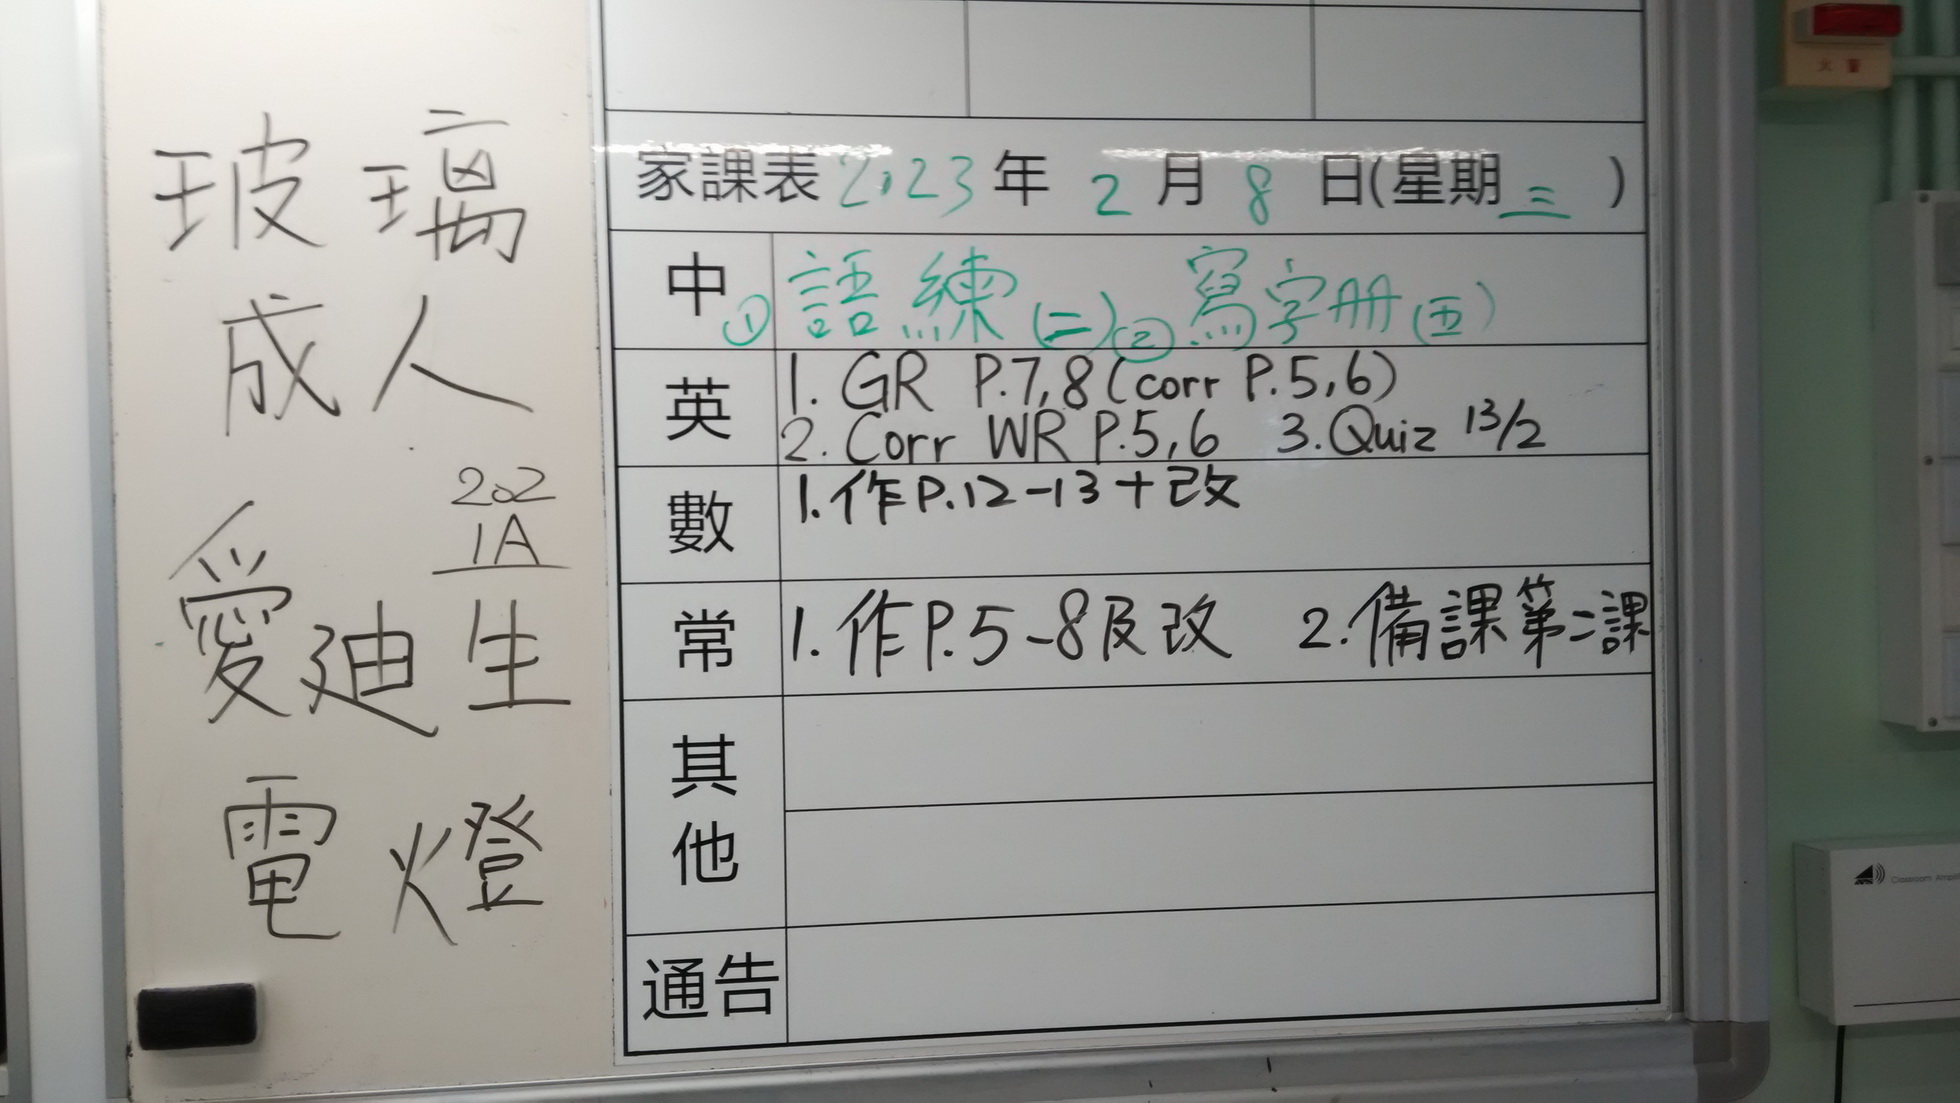 玻璃
成人
202
1A
愛迪生
電燈
家課表 2023 年 2 月 8 日(星期三)
中 ① 語練(二) ② 寫字册(五)
英 1. GR P.7,8 (corr P.5,6)
2. Corr WR P.5,6 3. Quiz 13/2
數 1. 作 P.12-13 + 改
常 1. 作 P.5-8及改 2. 備課第二課
其他
通告
火警